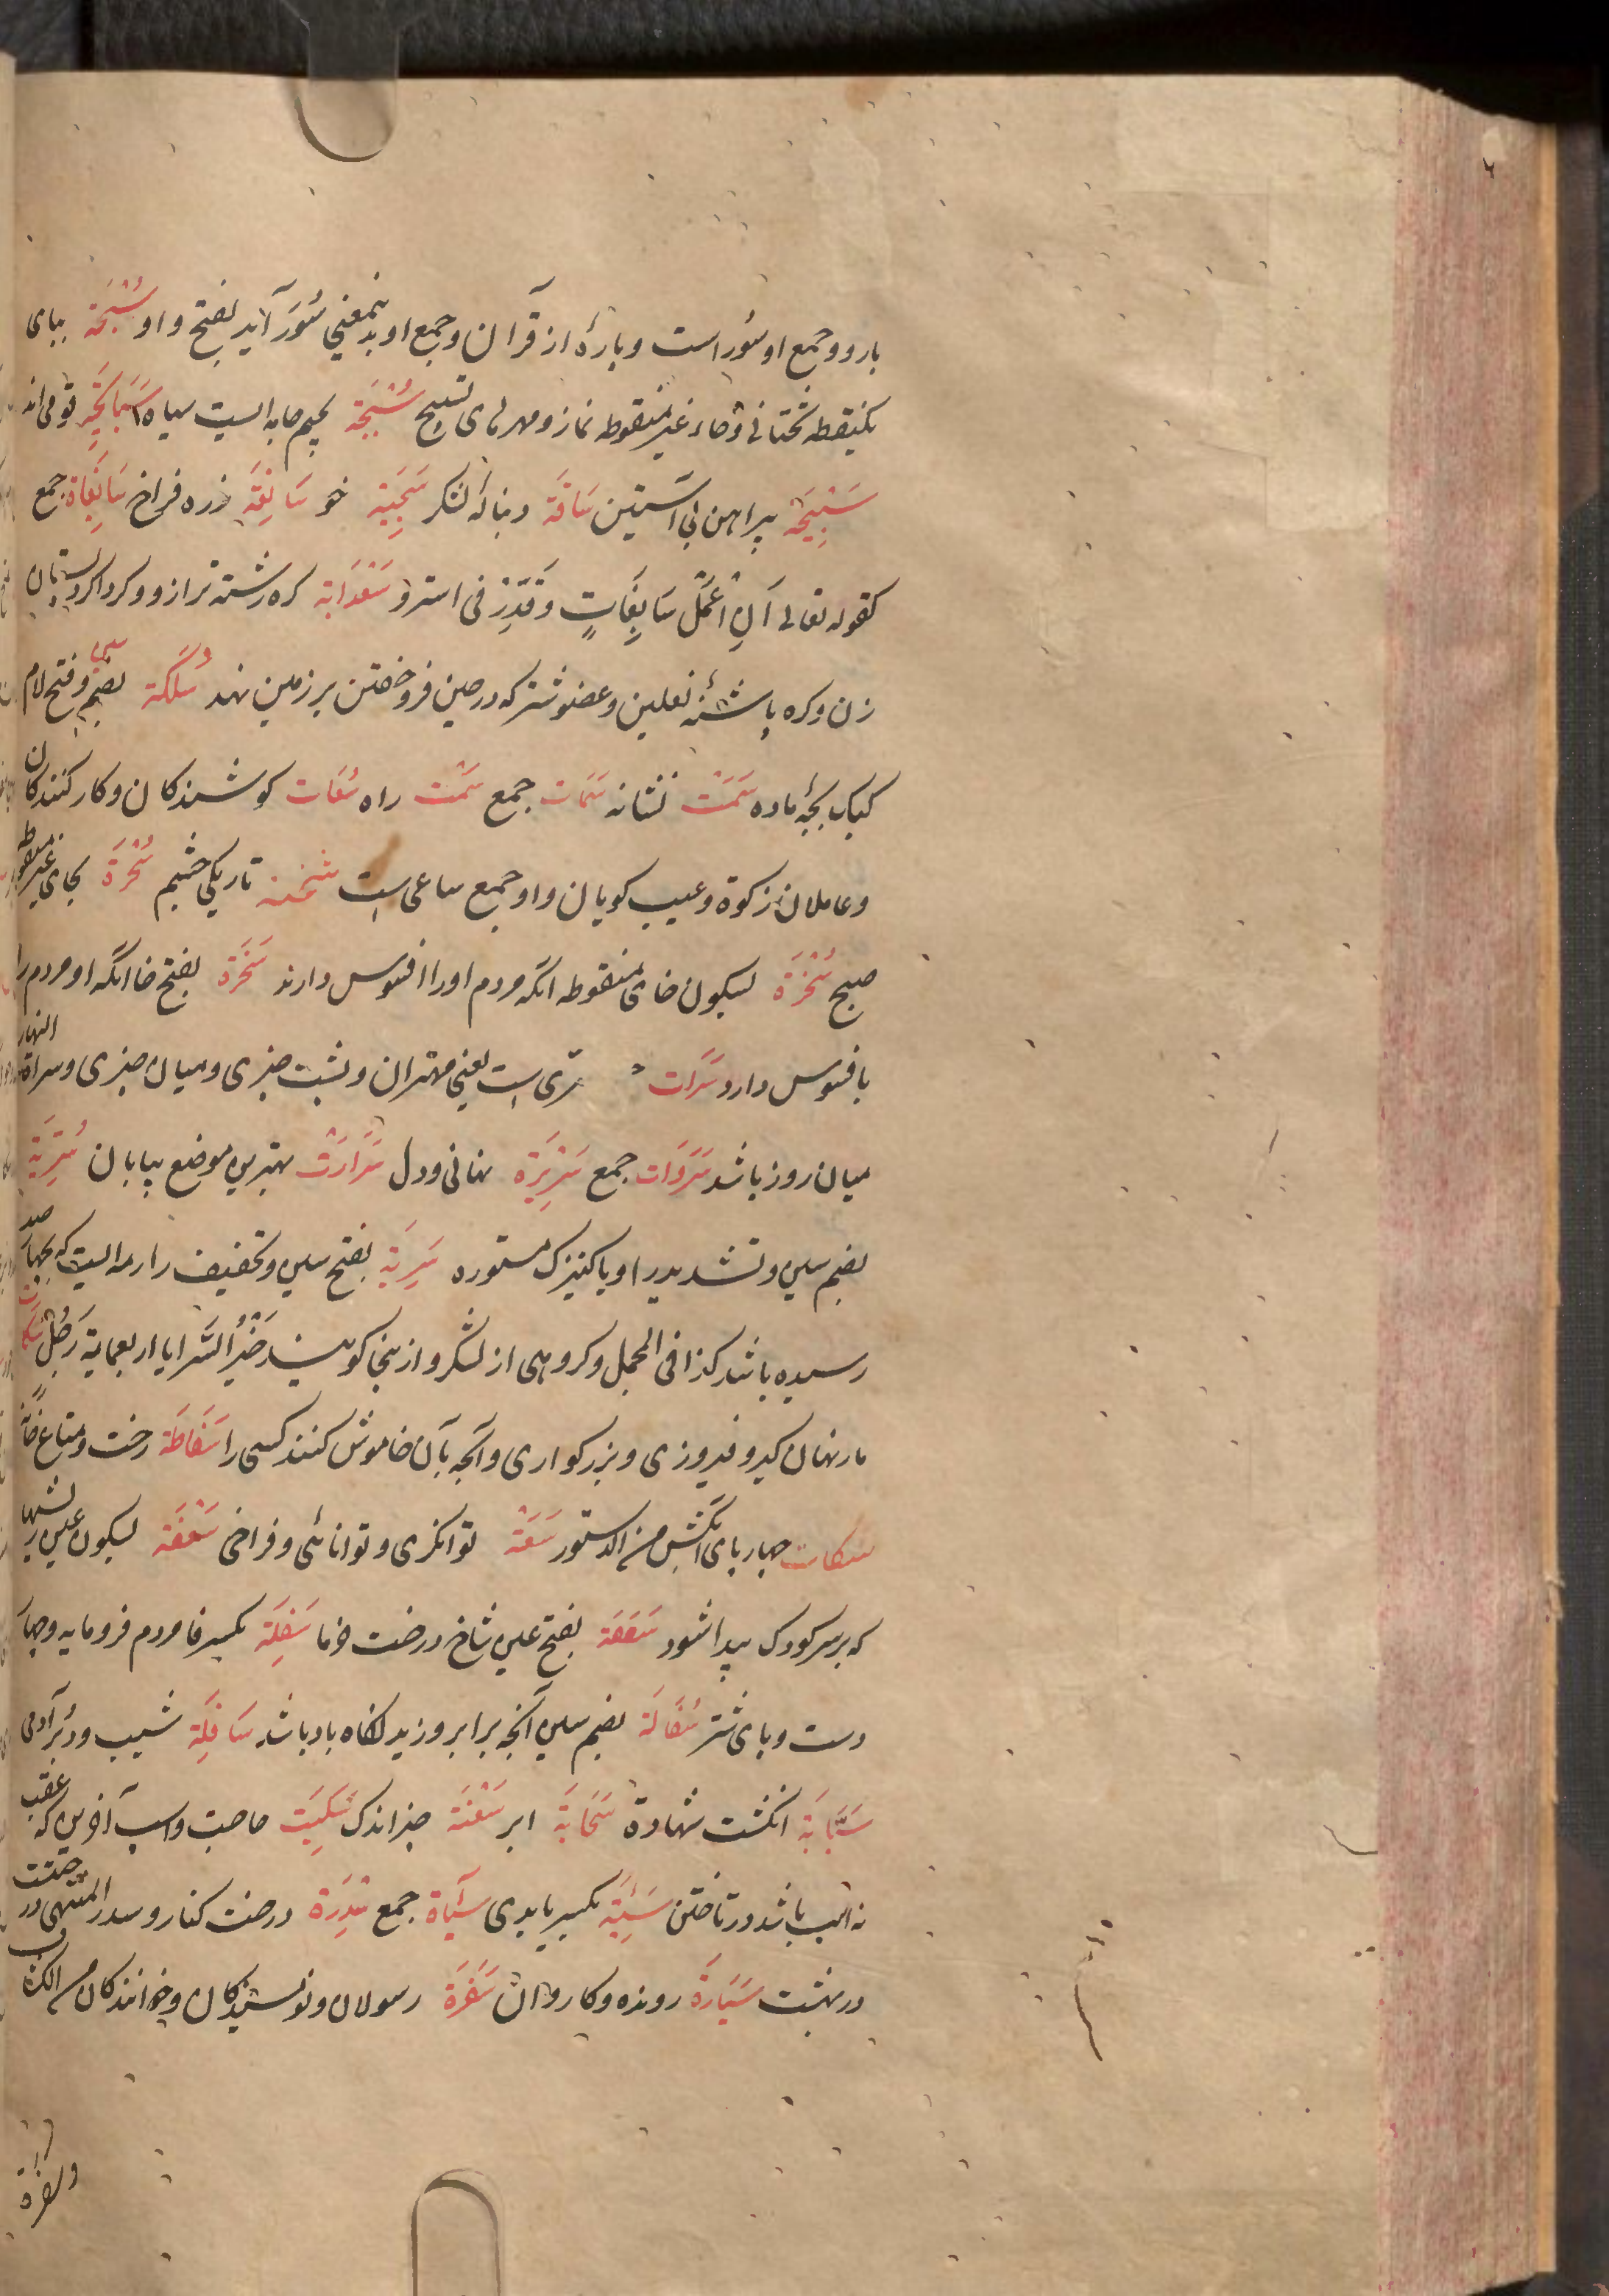 بارو و جمع او سُوراست و پارهٔ از قرآن و جمع او بدینمعنی سُوَر آید بفتح واو سُبْحَة ببای
یکنقطه تحتانی و حاء غیر منقوطه نماز و مهرهای تسبیح سُبْجَة بجیم جامه ایست سیاه سَبَابِجَة قومی اند
سَبِیْجَة پیراهن بی آستین سَاقَة دنبالهٔ لشکر سَجِیَّة خو سَابِغَة زره فراخ سَابِغَاة جمع
کقوله تعالی اَنِ اعْمَلْ سَابِغَاتٍ وَقَدِّرْ فی السرد سَعْدَانَة کره رشته ترازو و کرداکرد پستان
زن و کره پاشنهٔ نعلین و عضو شتر که در حین فروخفتن بر زمین نهد سُلَکَة بضم سین و فتح لام
کبک بچهٔ ماده سَمَت نشانه سَمَات جمع سَمْت راه سُعَات کوشندکان و کارکنندکان
و عاملان زکوة و عیب کویان و او جمع ساعی است سخمة تاریکی خشم سُحْرَة بحای غیر منقوطه
صبح سُخْرَة بسکون خای منقوطه آنکه مردم او را افسوس دارند سُخَرَة بفتح خا آنکه او مردم را
بافسوس دارد سَرَات سری است یعنی مهتران و پشت چیزی و میان چیزی و سراة النهار
میان روز باشد سَرَوَات جمع سَرِیْرَة نهانی و دل سَرَارَت بهترین موضع بیابان سُرِّیَّة
بضم سین و تشدید را و یا کنیزک مستوره سَرِیَّة بفتح سین و تخفیف را رمه ایست که بچهار صد
رسیده باشد کذا فی المجمل و کروهی از لشکر و ازینجا کویند خَیْرُ السَّرایا اربعمایة رَجُلٍ سکات
مار نهان کیر و فیروزی و بزرکواری و آنچه بآن خاموش کنند کسی را سَقَاطَة رخت و متاع خانه
سکات چهارپای آبکش من الدستور سَعَة توانکری و توانائی و فراخی سَعْفَة بسکون عین ریشها
که بر سر کودک پیدا شود سَعَفَة بفتح عین شاخ درخت خرما سَفِلَة بکسر فا مردم فرومایه و چهار
دست و پای شتر سُفَالَة بضم سین آنچه برابر وزید لکاه باد باشد سَافِلَة شیب و دُبر آدمی
سَبَّابَة انکشت شهادة سَحَابَة ابر سَعْنَة چیز اندک سُکَیْت صاحب و اسپ آخرین که عقب
نه اسب باشد در تاختن سَیِّئَة بکسر یا بدی سَیِّآة جمع سِدْرَة درخت کنار و سدر المنتهی درختیست در
در بهشت سَیَّارَة رونده و کاروان سَفَرَة رسولان و نویسندکان و خوانندکان من الکتاب
والسفرة